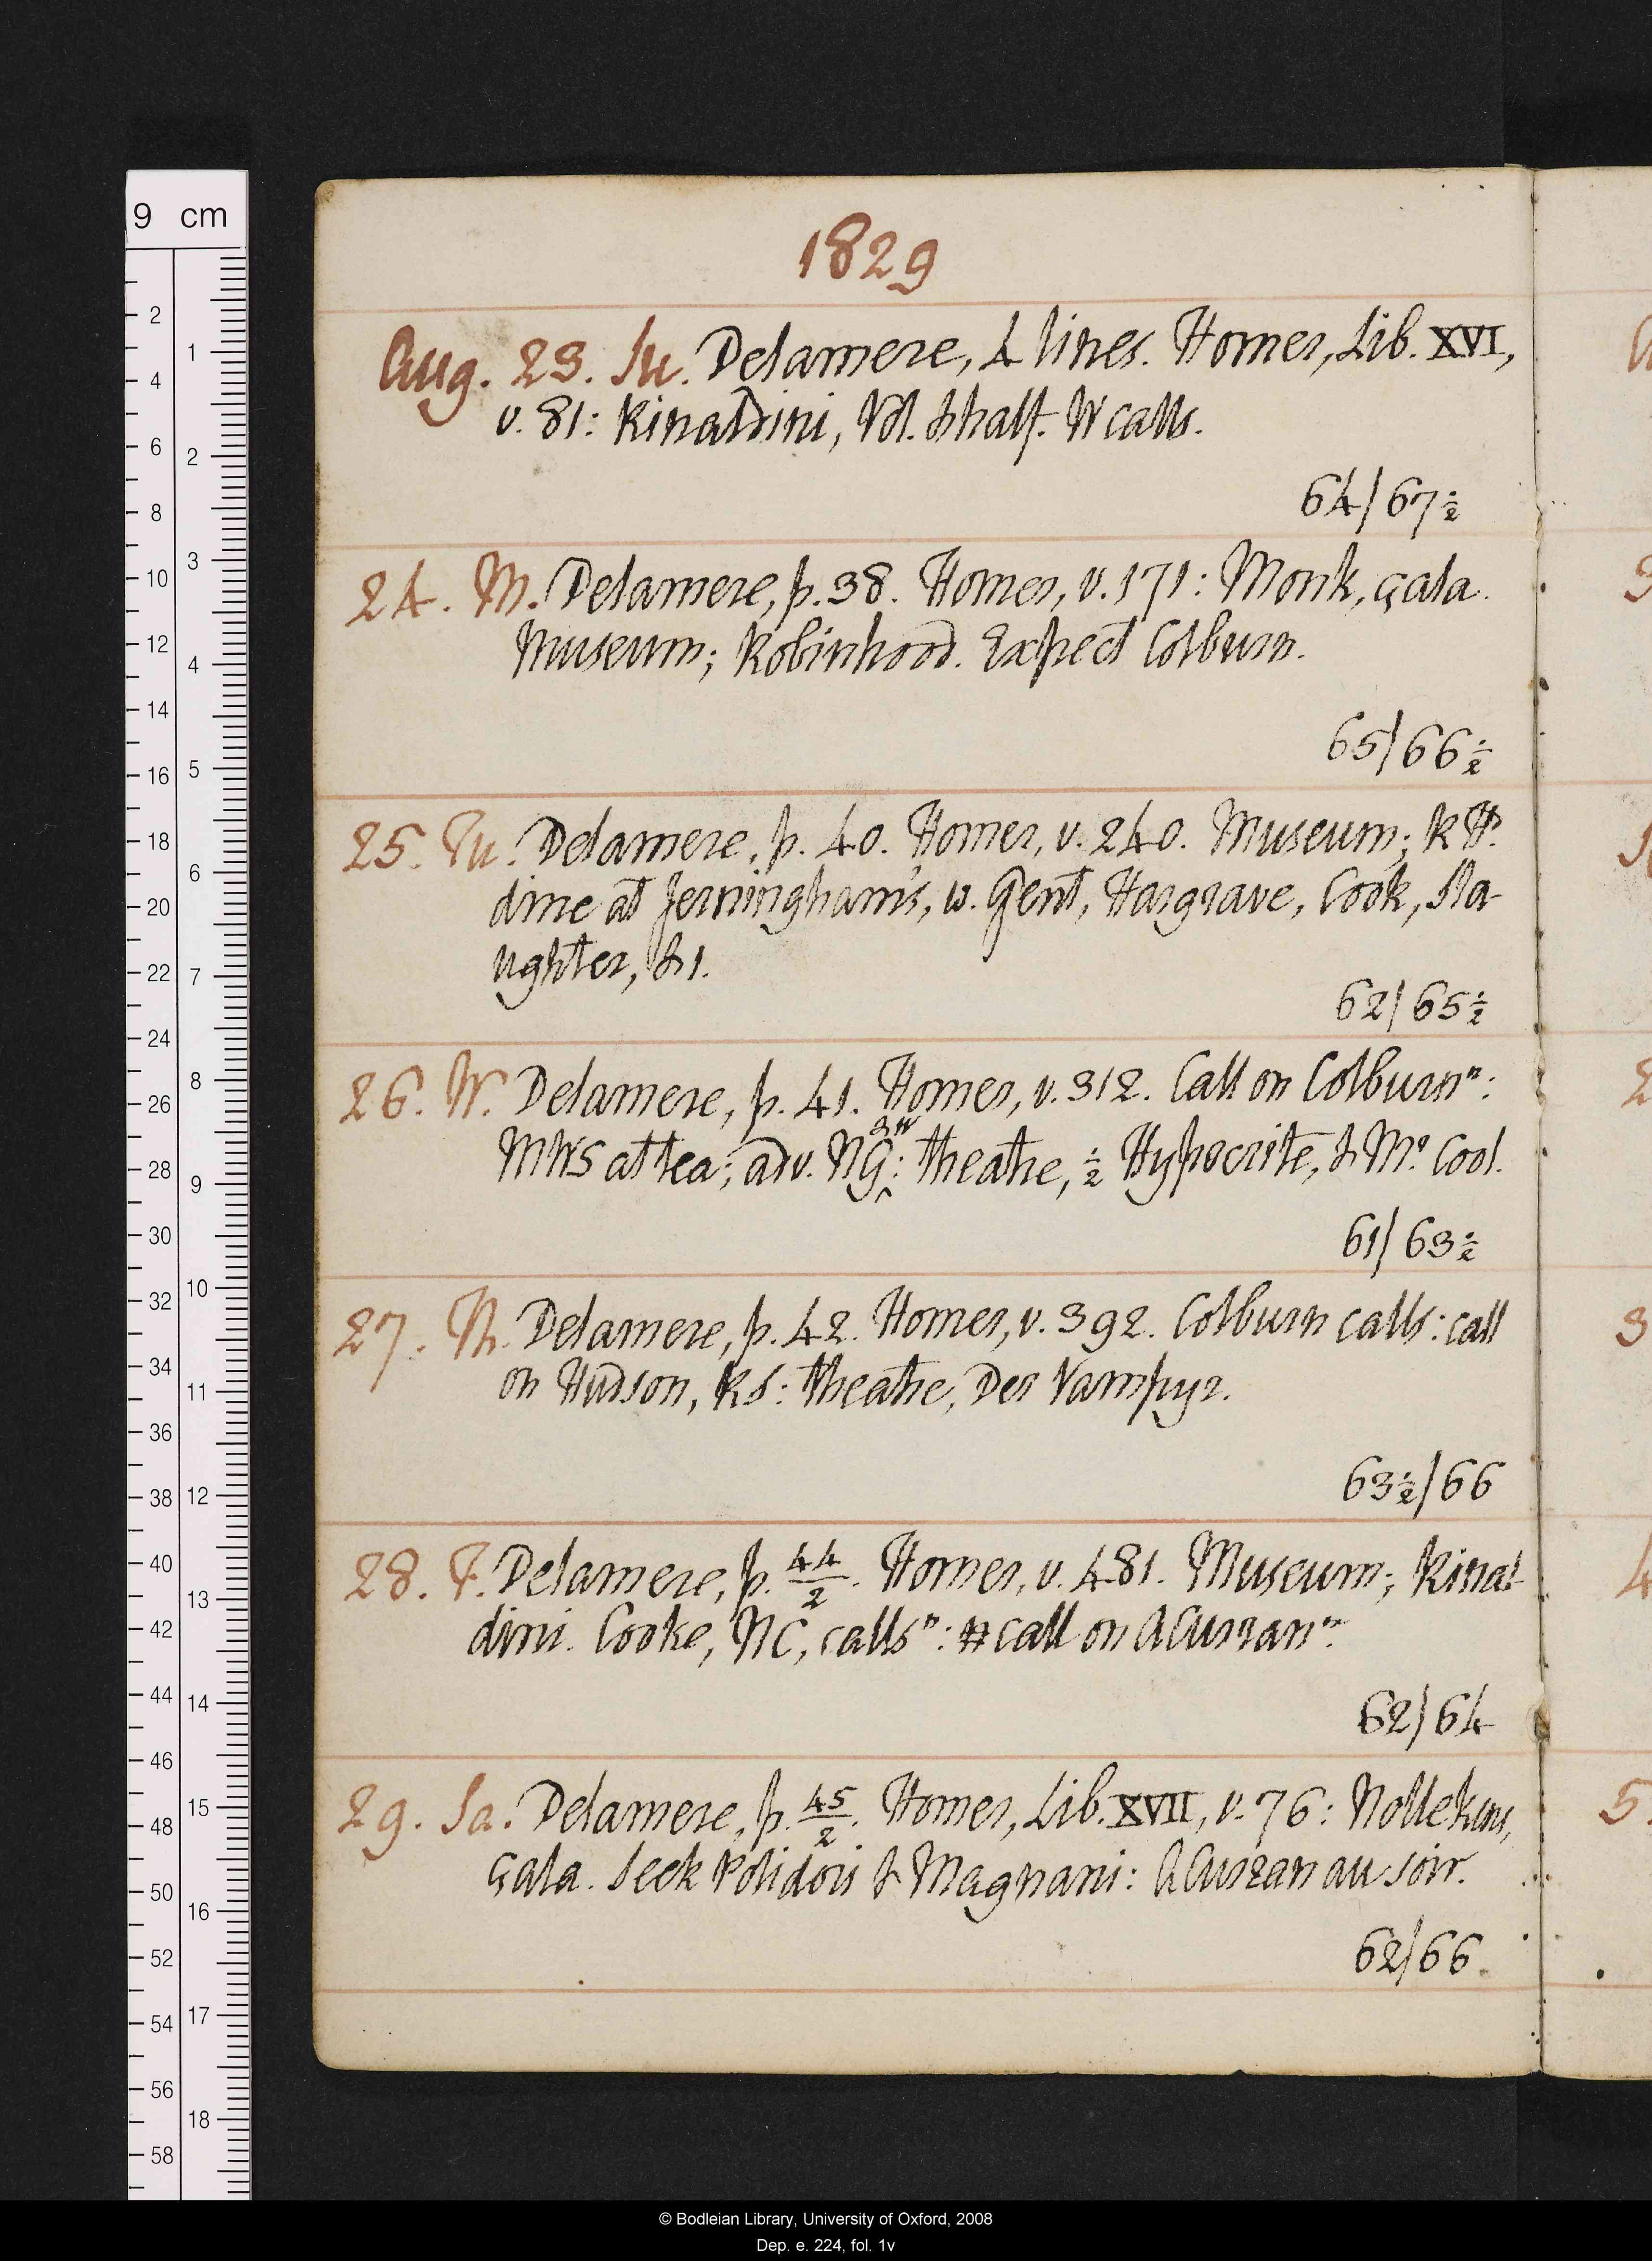 1829
Aug. 23. Su. Delamere, 4 lines. Homer, Lib. XVI,
v. 81: Rinaldini, Vol. & half. W calls.
64/67½
24. M. Delamere, p. 38. Homer, v. 171: Monk, çala.
Museum; Robinhood. Expect Colburn.
65/66½
25. Tu. Delamere, p. 40. Homer, v. 240. Museum; R Hd:
dine at Jerningham's, w. Gent, Hargrave, Cook, Sla-
ughter, & 1.
62/65½
26. W. Delamere, p. 41. Homer, v. 312. Call on Colburn n:
& W
MWS at tea; adv. NG: theatre, ½ Hypocrite, & Mo Cool.
61/63½
27. Th. Delamere, p. 42. Homer, v. 392. Colburn calls: call
on Hudson, RS: theatre, Der Vampyr.
63½/66
28. F. Delamere, p. 44/2. Homer, v. 481. Museum; Rinal-
dini. Cooke, NC, calls n: # call on A Curran n.
62/64
29. Sa. Delamere, p. 45/2. Homer, Lib. XVII, v. 76: Nollekens,
çala. Seek Polidori & Magnani: A Curran au soir.
62/66
9 cm
2
4
6
8
10
12
14
16
18
20
22
24
26
28
30
32
34
36
38
40
42
44
46
48
50
52
54
56
58
1
2
3
4
5
6
7
8
9
10
11
12
13
14
15
16
17
18
© Bodleian Library, University of Oxford, 2008
Dep. e. 224, fol. 1v